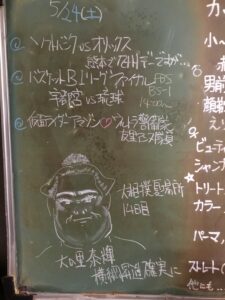 5/24(土)
ソフトバンクvsオリックス
熊本でデーゲームですが…
バスケットB1リーグファイナル
宇都宮vs琉球
BS-1
仮面ライダーアマゾン♡ウルトラ警備隊
友里アンヌ隊員
大相撲夏場所
14日目
大の里泰輝
横綱昇進確実に
カッ
小〜
男前
顔剃
ビューティ
シャンプ
☆トリート
カラー
パーマ、
ストレート(
他にも‥